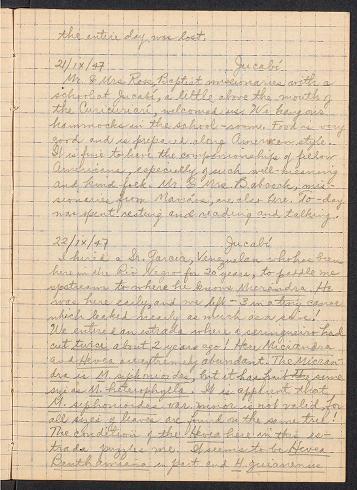 the entire day was lost.
21/IX/47 Jucabí
Mr. & Mrs Ross, Baptist missionaries with a
school at Jucabí, a little above the mouth of
the Curicuriarí welcomed us. We hang our
hammocks in the school-room. Food is very
good and is prepared along American style.
It is fine to have the companionships of fellow
Americans, especially of such well-meaning
and kind folk. Mr. & Mrs. Babcock, mis-
sionaries from Manáos, are also here. To-day
was spent resting and reading and talking.
22/IX/47 Jucabí
I hired a Sr. Garcia, Venezuelan who has been
here in the Rio Negro for 20 years, to paddle me
upstream to where he knows Micrandra. He
was here early and we left - 3 in a tiny canoe
which leaked nearly as much as a sieve!
We entered an estrada where a seringueiro had
cut twice about 2 years ago! Here Micrandra
and Hevea are extremely abundant. The Micran-
dra is M. siphonioides, but it has fruit the same
size as M. heterophylla. It is apparent that
M. siphonioides var. minor is not valid for
all sizes of leaves are found on the same tree!
The condition of the Hevea here in this es-
trada puzzles me. It seems to be Hevea
Benthamiana in part and H. guianensis